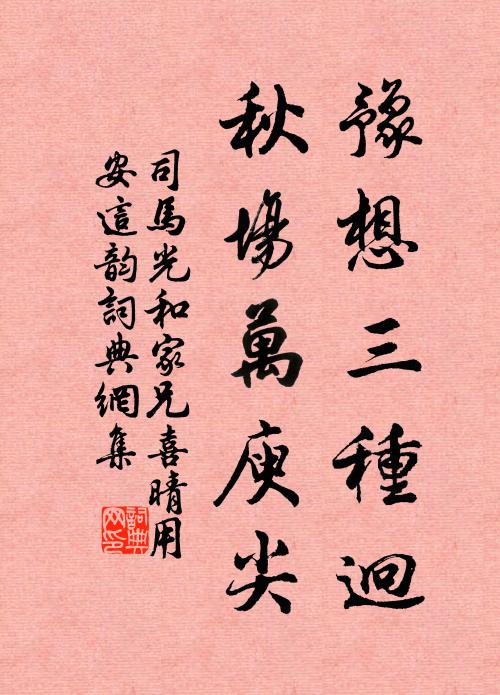 豫想三種迥
秋場萬庾尖
司馬光和家兄喜晴用
安這韵詞典網集
詞典
网印